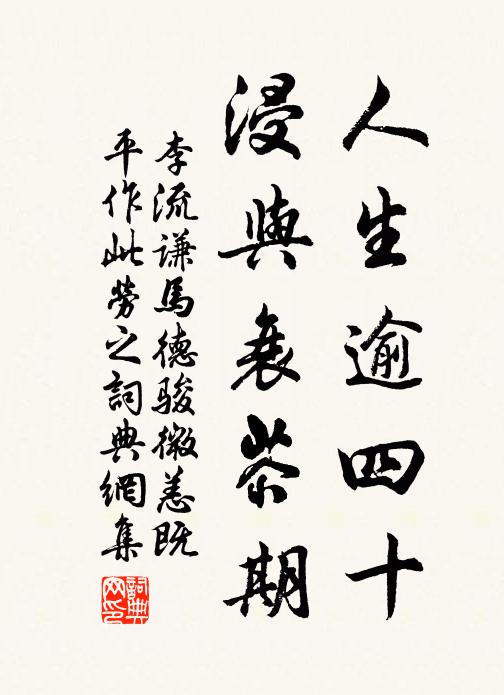 人生逾四十
浸與衰茶期
李流謙馬德駿微恙既
平作此勞之詞典網集
詞典網印